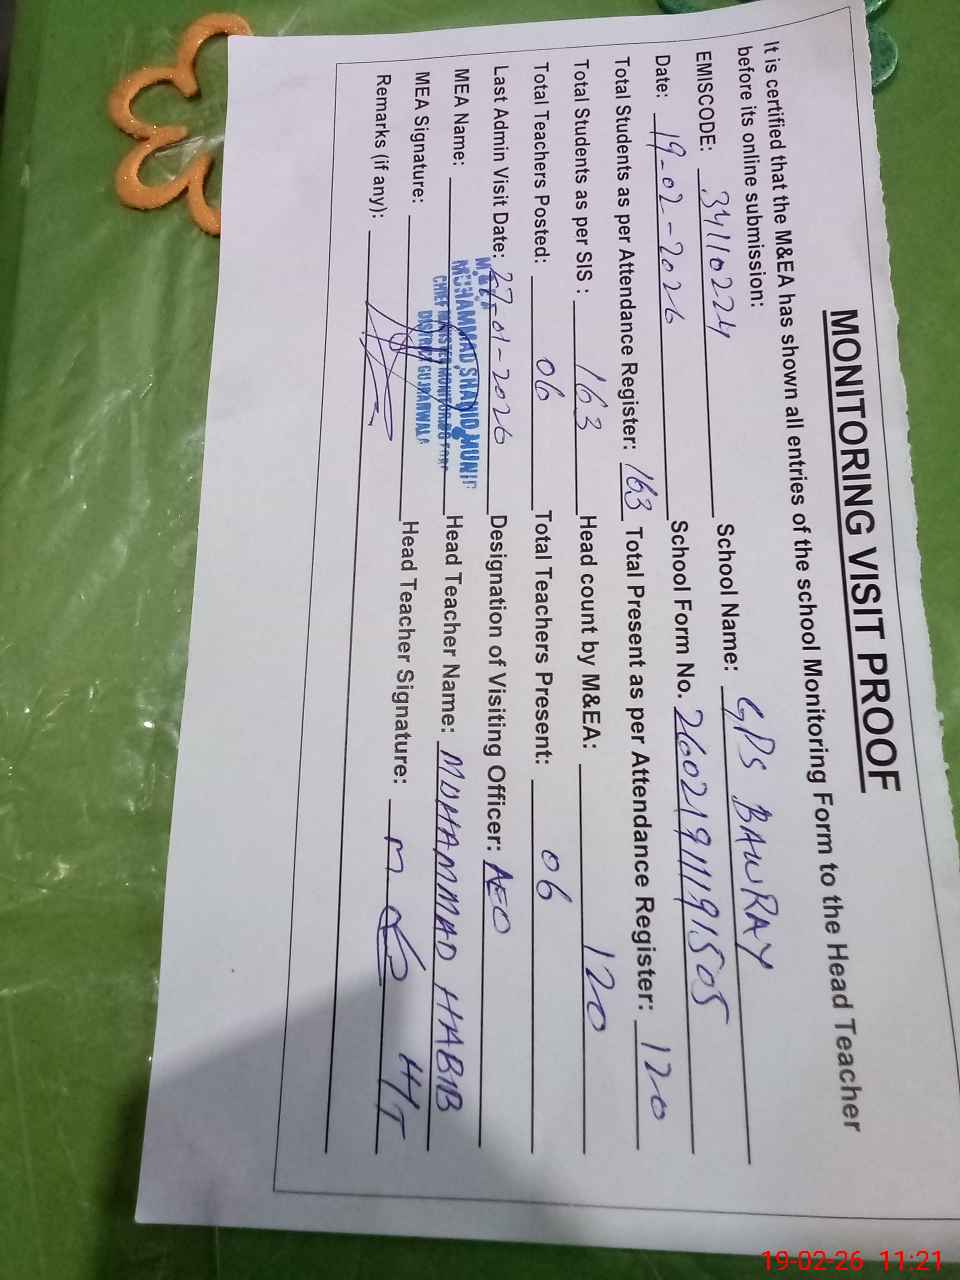 MONITORING VISIT PROOF
It is certified that the M&EA has shown all entries of the school Monitoring Form to the Head Teacher
before its online submission:
EMISCODE: 34110224 School Name: GPS BAWRAY
Date: 19-02-2026 School Form No. 26021911191505
Total Students as per Attendance Register: 163 Total Present as per Attendance Register: 120
Total Students as per SIS : 163 Head count by M&EA: 120
Total Teachers Posted: 06 Total Teachers Present: 06
Last Admin Visit Date: 27-01-2026 Designation of Visiting Officer: AEO
MEA Name: Head Teacher Name: MUHAMMAD HABIB
M.E.A
MUHAMMAD SHAHID MUNIR
CHIEF MINISTER MONITORING FORCE
DISTRICT GUJRANWALA
MEA Signature: Head Teacher Signature: H/T
Remarks (if any):
19-02-26 11:21